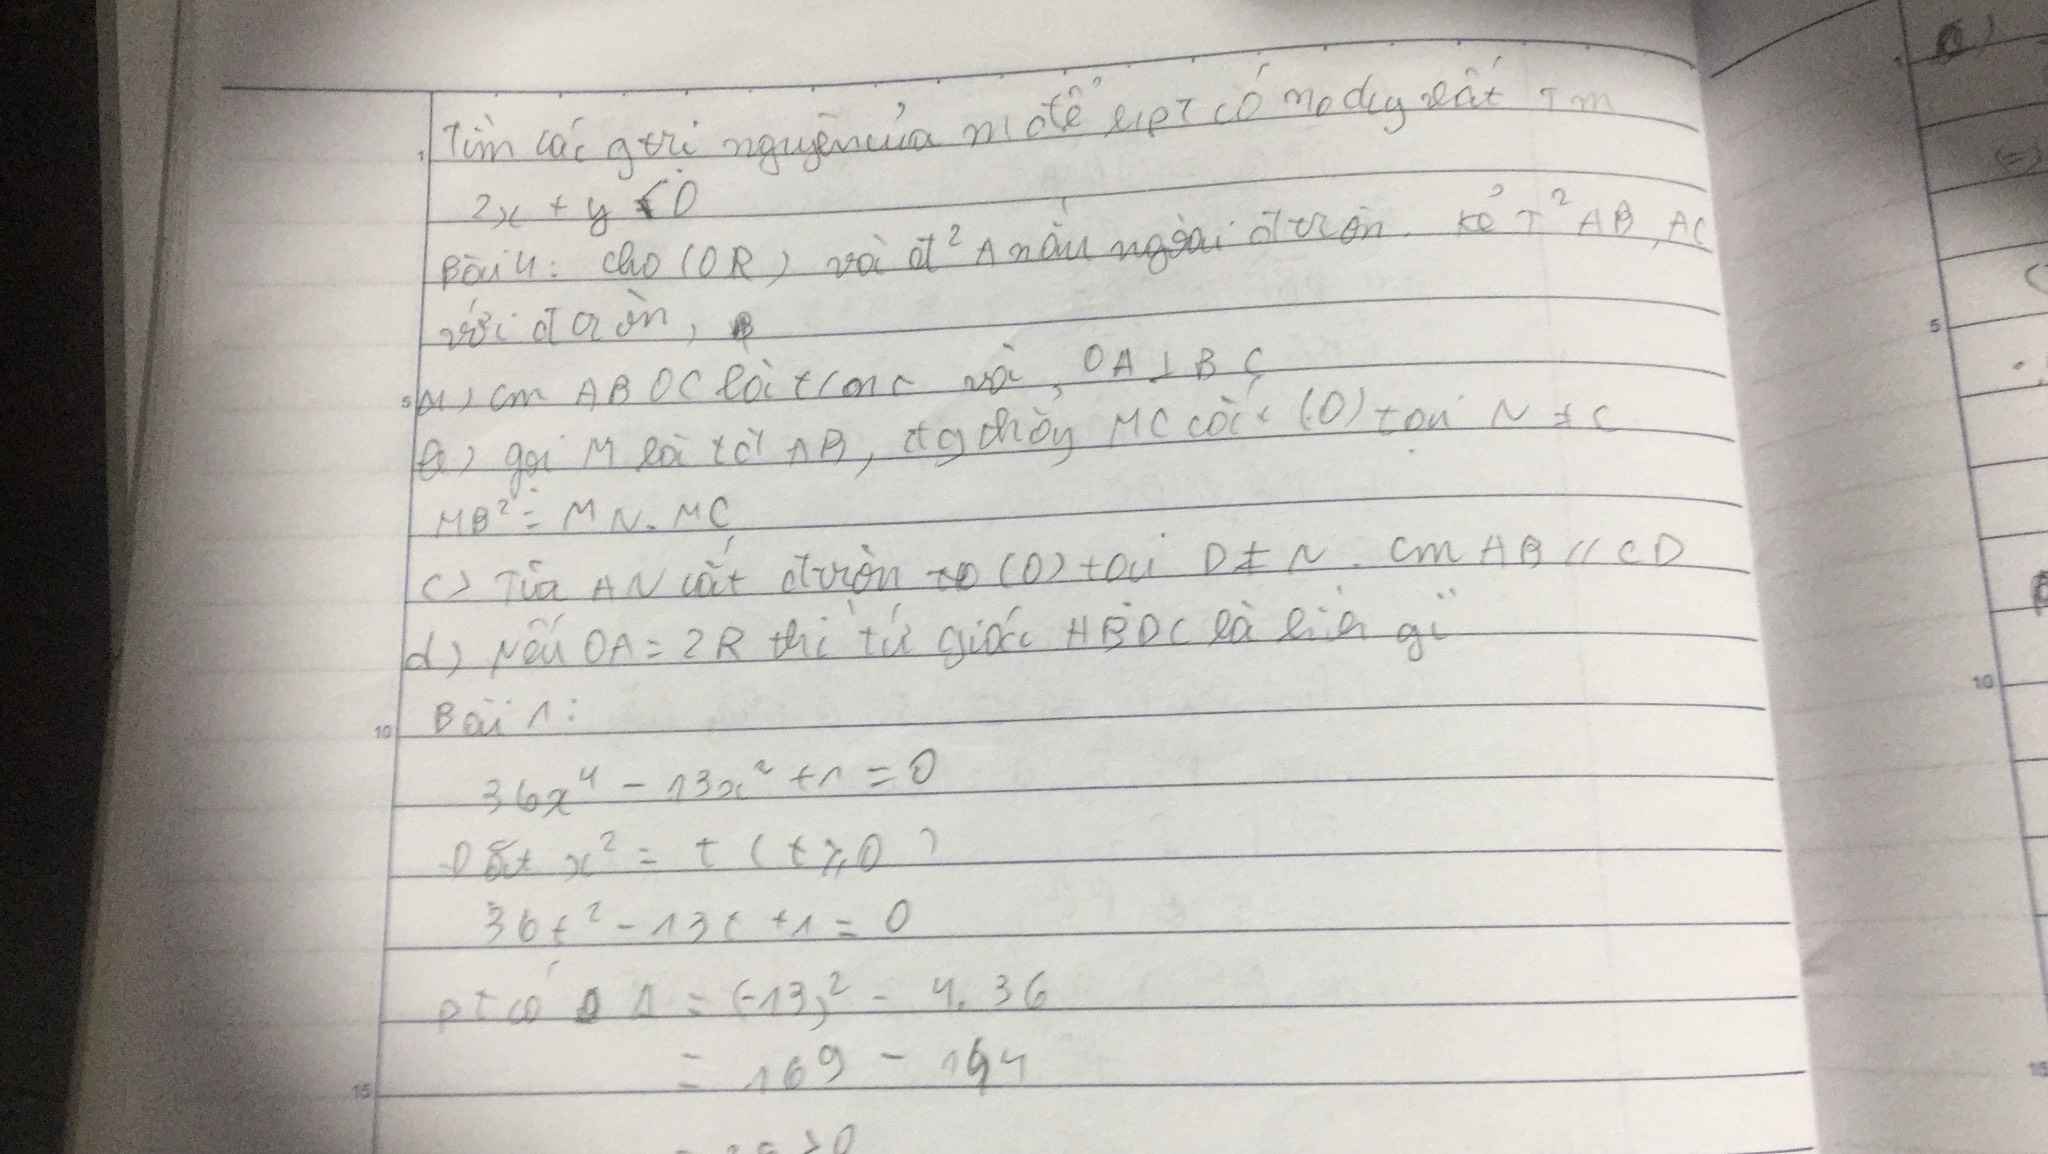 Tìm các gtrị nguyên của m để hpT có no duy nhất Tm
2x + y < 0
Bài 4: cho (O R) và đ² A nằm ngoài đ tròn. Kẻ T² AB, AC
với đ tròn,
a) cm ABOC là và, OA ⊥ BC
b) gọi M là tđ AB, đg thẳg MC cắt (O) tại N ≠ C
MB² = MN. MC
c) Tia AN cắt đ tròn (O) tại D ≠ N. cm AB // CD
d) Nếu OA = 2R thì tứ giác ABOC là hìh gì
Bài 1:
36x⁴ - 13x² + 1 = 0
Đặt x² = t (t ≥ 0)
36t² - 13t + 1 = 0
pt có Δ = (-13)² - 4. 36
= 169 - 144
> 0
5
10
15
5
10
15